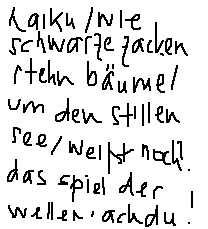 haiku/wie
schwarze zacken
stehn bäume/
um den stillen
see/weißt noch?
das spiel der
wellen. ach du!